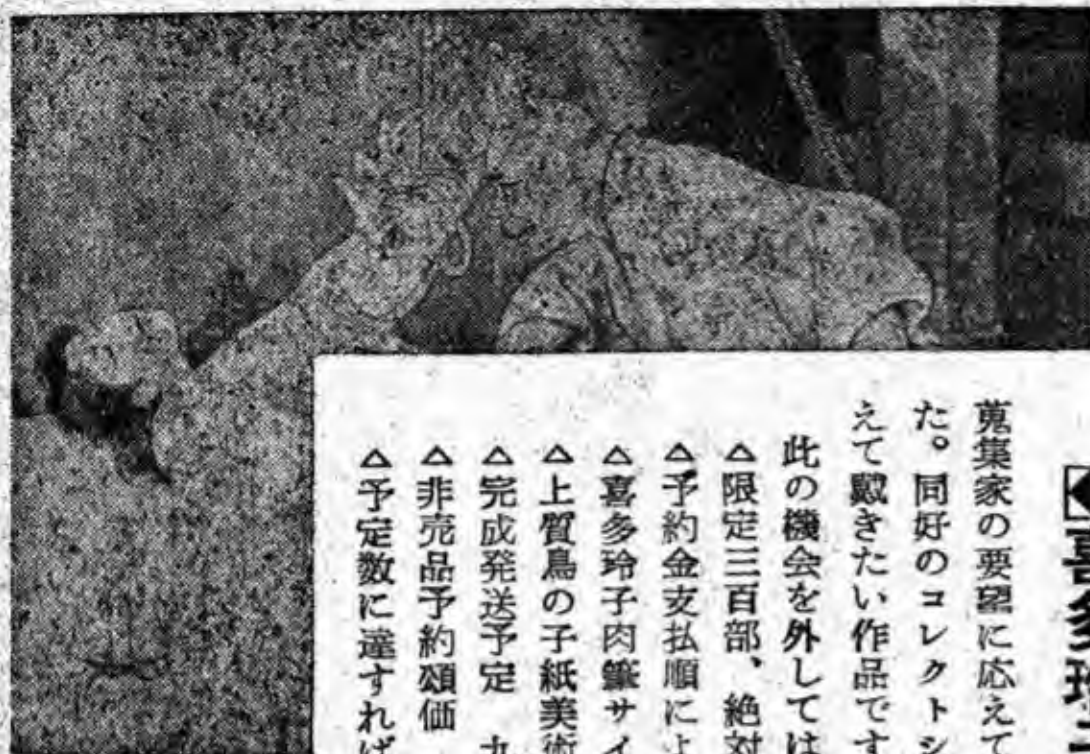 喜多玲
蒐集家の要望に応えて
た。同好のコレクトシ
えて戴きたい作品です
此の機会を外しては
△限定三百部、絶対
△予約金支払順によ
△喜多玲子肉筆サイ
△上質鳥の子紙美術
△完成発送予定 九
△非売品予約頒価
△予定数に達すれば